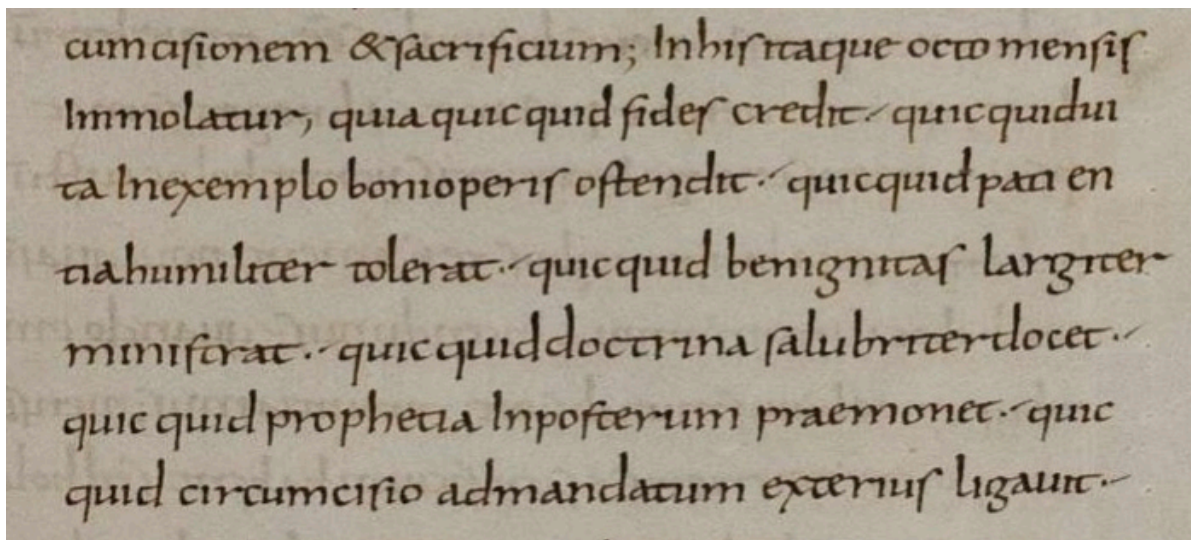 cumcisionem & sacrificium; Inhis itaque octo mensis
Immolatur, quia quicquid fides credit· quicquid ui
ta Inexemplo boni operis ostendit· quicquid pati en
tia humiliter tolerat· quicquid benignitas largiter
ministrat· quicquid doctrina salubriter docet·
quic quid prophetia Inposterum praemonet· quic
quid circumcisio admandatum exterius ligauit·